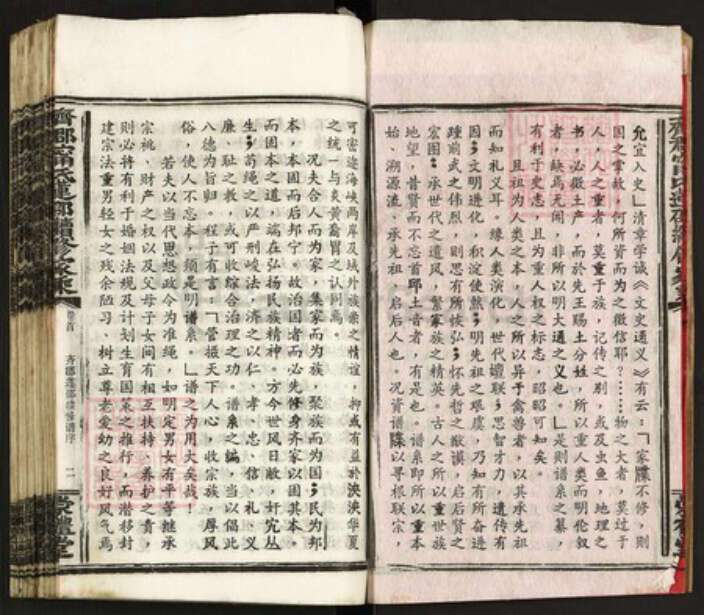 允宜入史」清章学诚《文史通义》有云:「家牒不修,则
国之掌故,何所资而为之徵信耶?……物之大者,莫过于
人,人之重者,莫重于族,记传之别,或及虫鱼,地理之
书,必徵土产,而於先王赐土分姓,所以重人类而明伦叙
者,缺焉无闻,非所以明大通之义也。」是则谱系之纂,
有利于史志,且为重人权之标志,昭昭可知矣。
祖宗为人类之本,人之所以异于禽兽者,以其承先祖
而知礼义耳。缘人类演化,世代嬗联;思智才力,遗传有
因;文明进化,积淀使然;明先祖之艰虞,乃知有所奋进
踵前武之伟烈,则思有所恢弘;怀先哲之猷谟,启后贤之
宏图;承世代之遗风,繁家族之精英。古人之所以重世族
地望,昔贤而不忘首邱土音者,有是也。谱系即所以重本
始、溯源流、承先祖,启后人也。况资谱牒以寻根联宗,
可密迩海峡两岸及域外族亲之情谊,抑或有益於泱泱华夏
之统一与炎黄裔胄之认同焉。
况夫合人而为家,集家而为族,聚族而为国;民为邦
本,本固而后邦宁。故治国者而必先修身齐家以固其本。
而固本之道,端在弘扬民族精神。方今世风日敝,奸宄丛
生;苟绳之以严刑峻法,济之以仁、孝、忠、信、礼、义
廉、耻之教,或可收综合治理之功。谱系之编,当以倡此
八德为旨归。程子有言:「管摄天下人心,收宗族,厚风
俗,使人不忘本,须是明谱系。」谱之为用大矣哉!
若夫以当代思想政令为准绳,如明定男女有平等继承
宗祧、财产之权以及父母子女间有相互扶持、养护之责,
则必将有利于婚姻法规及计划生育国策之推行,而潜移封
建宗法重男轻女之残余陋习、树立尊老爱幼之良好风气焉
卷首
齐郡莲邵续修谱序
二